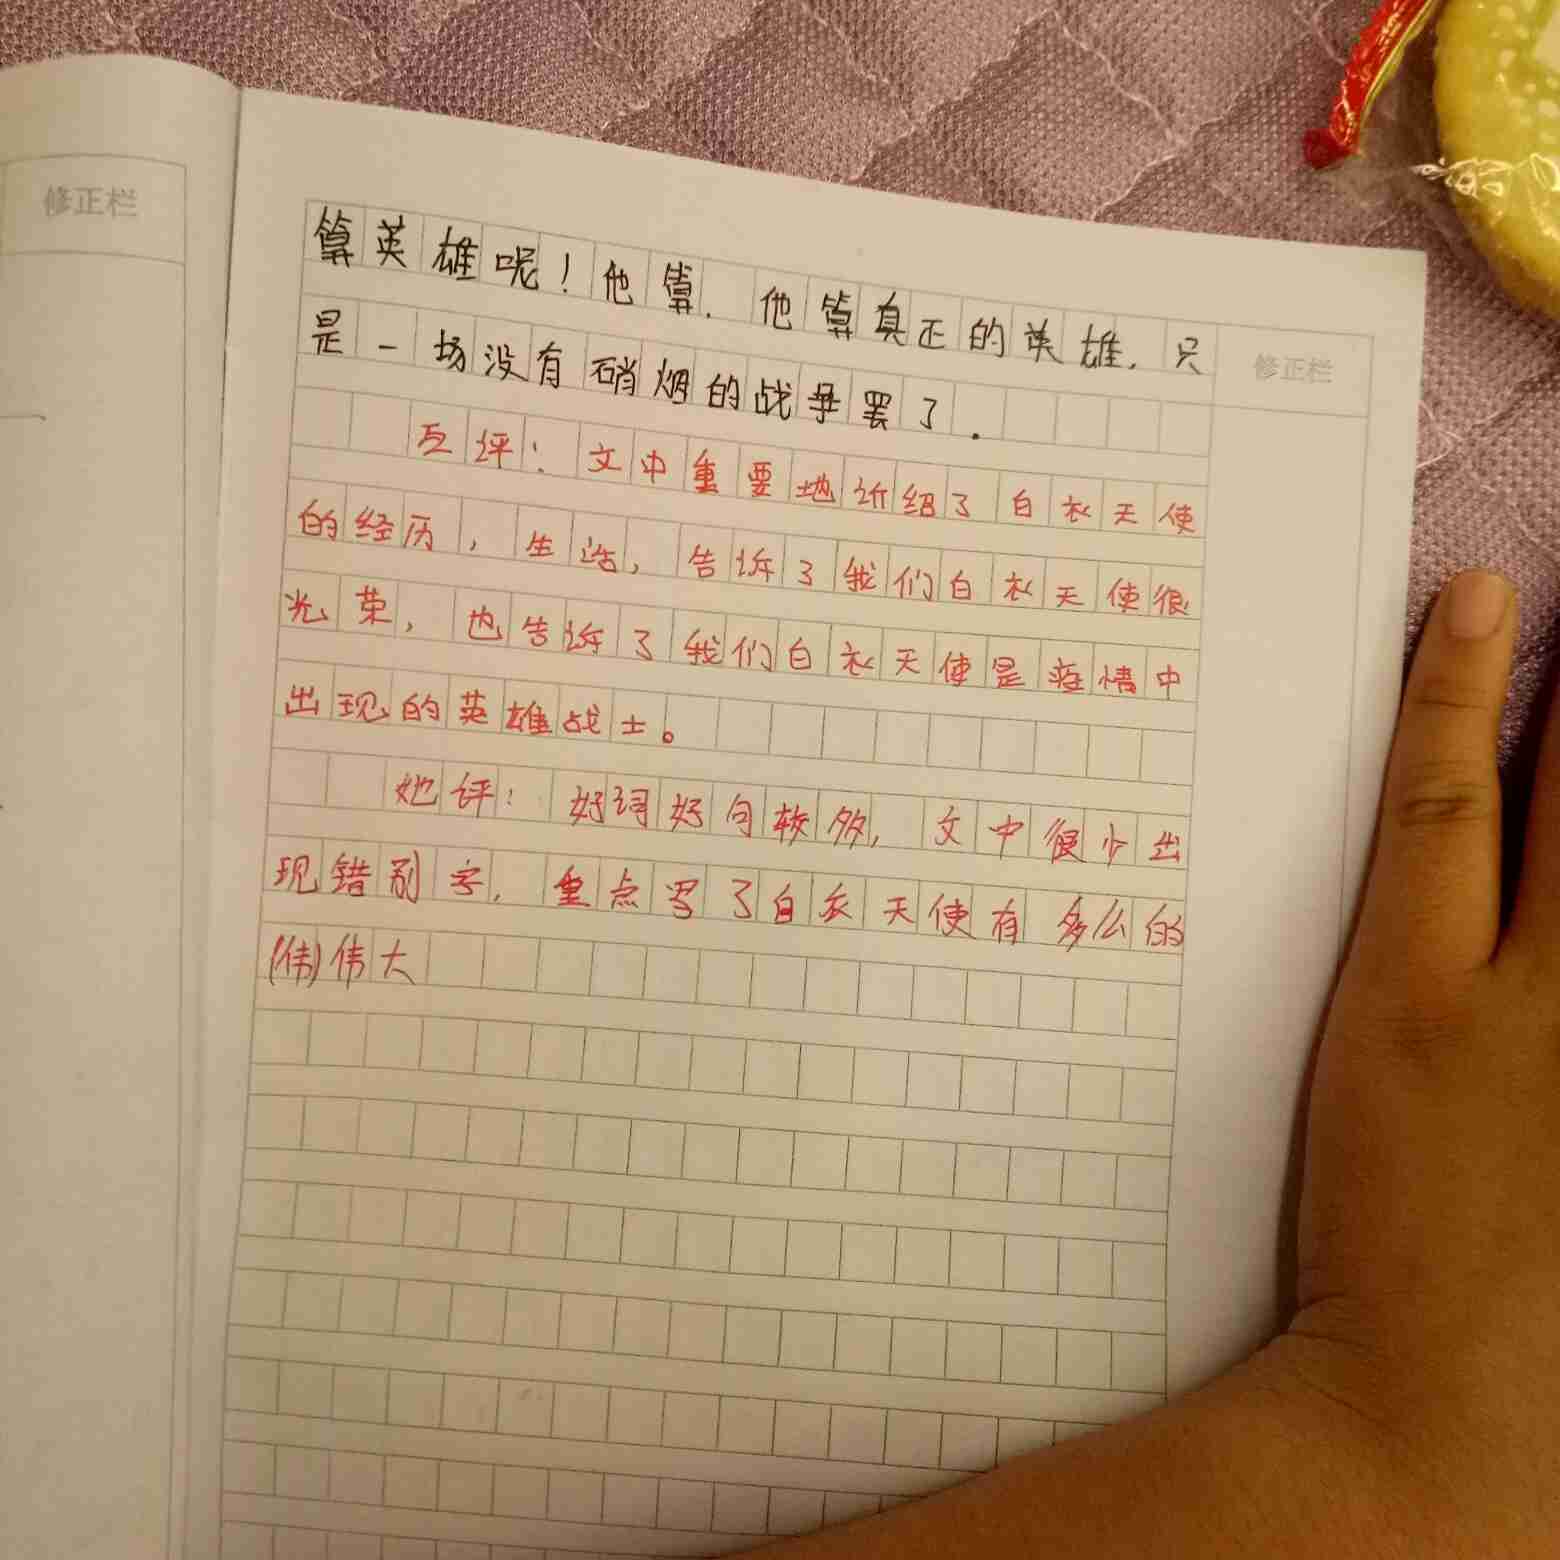 修正栏
算英雄呢！他算.他算真正的英雄.只
修正栏
是一场没有硝烟的战争罢了.
互评：文中重要地介绍了白衣天使
的经历，生活，告诉了我们白衣天使很
光荣，也告诉了我们白衣天使是疫情中
出现的英雄战士。
她评：好词好句较多，文中很少出
现错别字.重点写了白衣天使有多么的
(伟)伟大